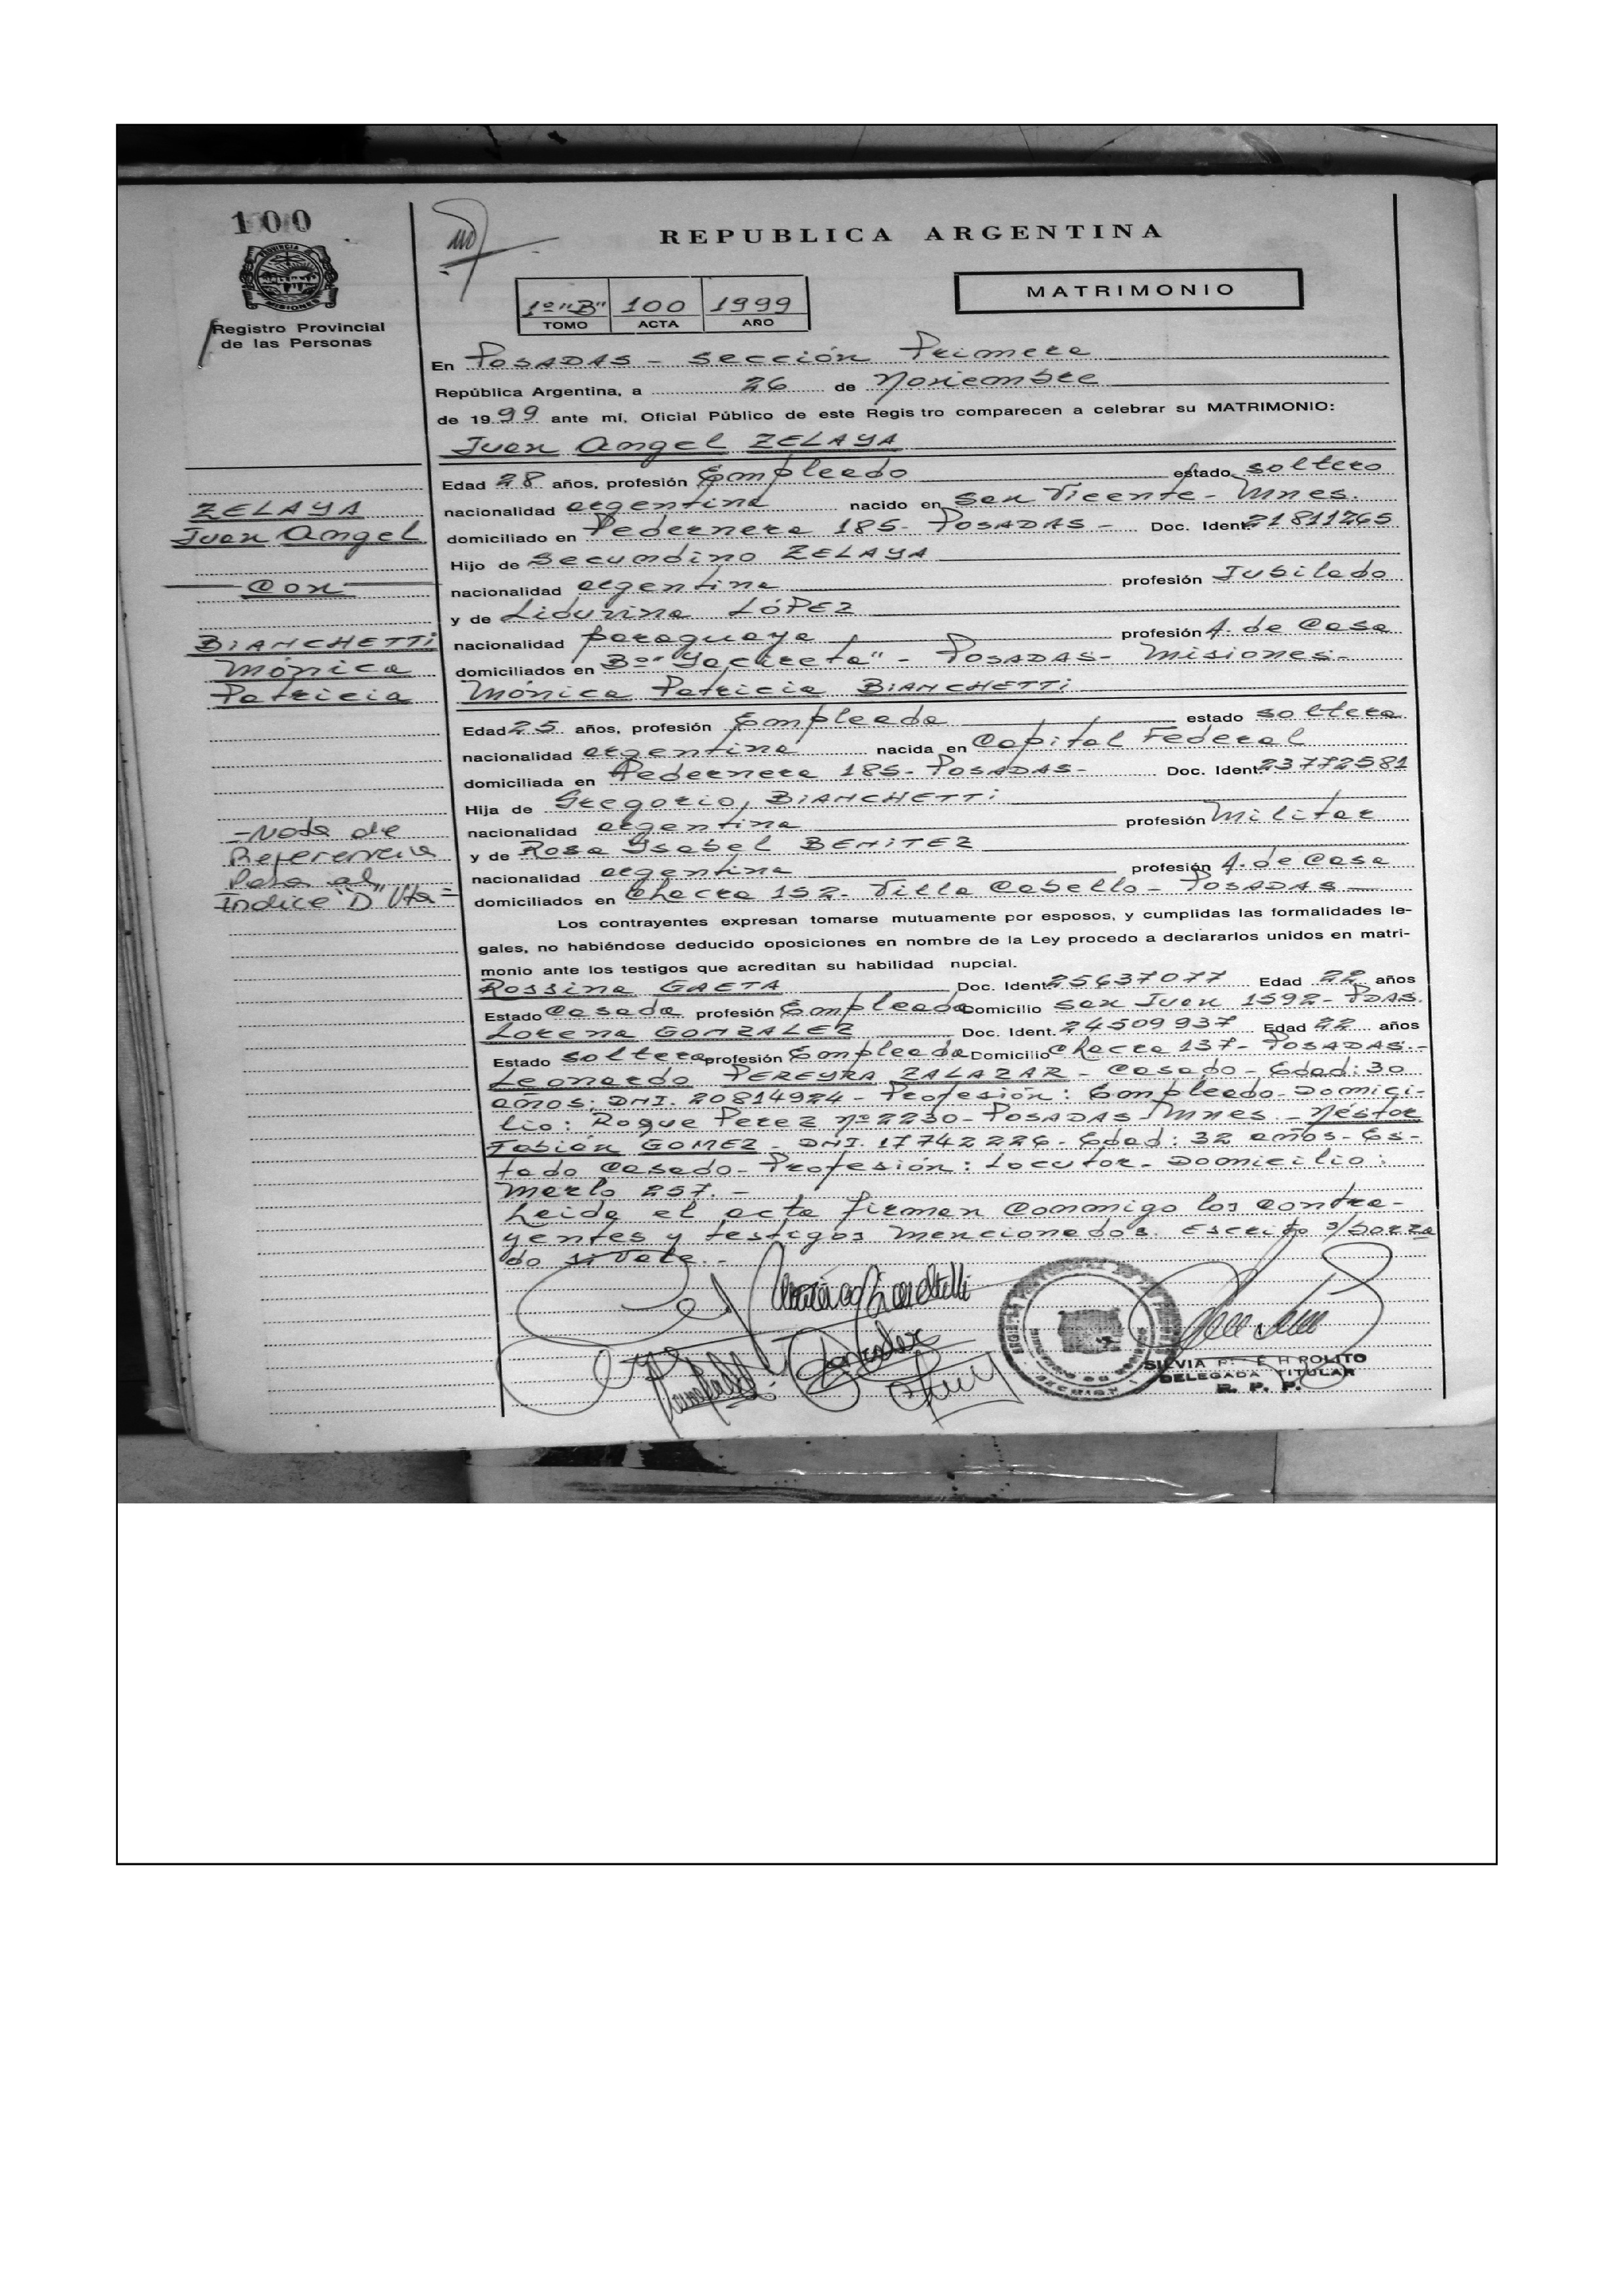 100
Registro Provincial
de las Personas
REPUBLICA ARGENTINA
1º "B" 100 1999
TOMO ACTA AÑO
MATRIMONIO
En POSADAS - Sección Primera
República Argentina, a 26 de Noviembre
de 1999 ante mí, Oficial Público de este Registro comparecen a celebrar su MATRIMONIO:
Juan Angel ZELAYA
Edad 28 años, profesión Empleado estado soltero
nacionalidad argentina nacido en San Vicente - Mnes.
domiciliado en Pedernera 185 - POSADAS - Doc. Ident. 21811265
Hijo de Secundino ZELAYA
nacionalidad argentina profesión Jubilado
y de Liduvina LÓPEZ
nacionalidad paraguaya profesión A. de Casa
domiciliados en Bº "Yacyreta" - POSADAS - Misiones -
Mónica Patricia BIANCHETTI
Edad 25 años, profesión Empleada estado soltera
nacionalidad argentina nacida en Capital Federal
domiciliada en Pedernera 185 - POSADAS - Doc. Ident. 23772581
Hija de Gregorio, BIANCHETTI
nacionalidad argentina profesión Militar
y de Rosa Ysabel BENITEZ
nacionalidad argentina profesión A. de Casa
domiciliados en Chacra 152 - Villa Cabello - POSADAS -
Los contrayentes expresan tomarse mutuamente por esposos, y cumplidas las formalidades le-
gales, no habiéndose deducido oposiciones en nombre de la Ley procedo a declararlos unidos en matri-
monio ante los testigos que acreditan su habilidad nupcial.
Rossina GAETA Doc. Ident. 25637077 Edad 22 años
Estado Casada profesión Empleada Domicilio San Juan 1592 - PDAS.
Lorena GONZALEZ Doc. Ident. 24509937 Edad 22 años
Estado soltera profesión Empleada Domicilio Chacra 137 - POSADAS. -
Leonardo PEREYRA ZALAZAR - Casado - Edad: 30
años; DNI. 20814924 - Profesión: Empleado - Domici-
lio: Roque Perez nº 2230 - POSADAS Mnes. - Néstor
Fabián GOMEZ - DNI. 17742226 - Edad: 32 años - Es-
tado Casado - Profesión: Locutor - Domicilio:
Merlo 257. -
Leida el acta firman Conmigo los Contra-
yentes y testigos mencionados. Escrito s/borra
do si Vale. -
ZELAYA
Juan Angel
Con
BIANCHETTI
Mónica
Patricia
- Nota de
Referencia
Pasa al
Indice "D" Vta -
SILVIA HIPOLITO
DELEGADA TITULAR
R. P. P.